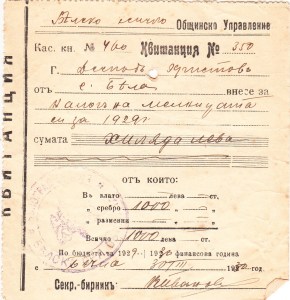 Бѣлско селско Общинско Управление
Кас. кн. № 400 Квитанция № 350
Г. Деспотъ Христовъ
отъ с. Бѣла внесе за
налогъ на мелницата
си за 1929 г.
сумата хиляда лева
отъ които:
Въ злато лева ст.
„ сребро 1000 „ „
„ размѣнни „ „
Всичко 1000 лева ст.
По бюджета на 1929 - 1930 финансова година
с. Бѣла 1930 год.
Секр.-бирникъ:
КВИТАНЦИЯ